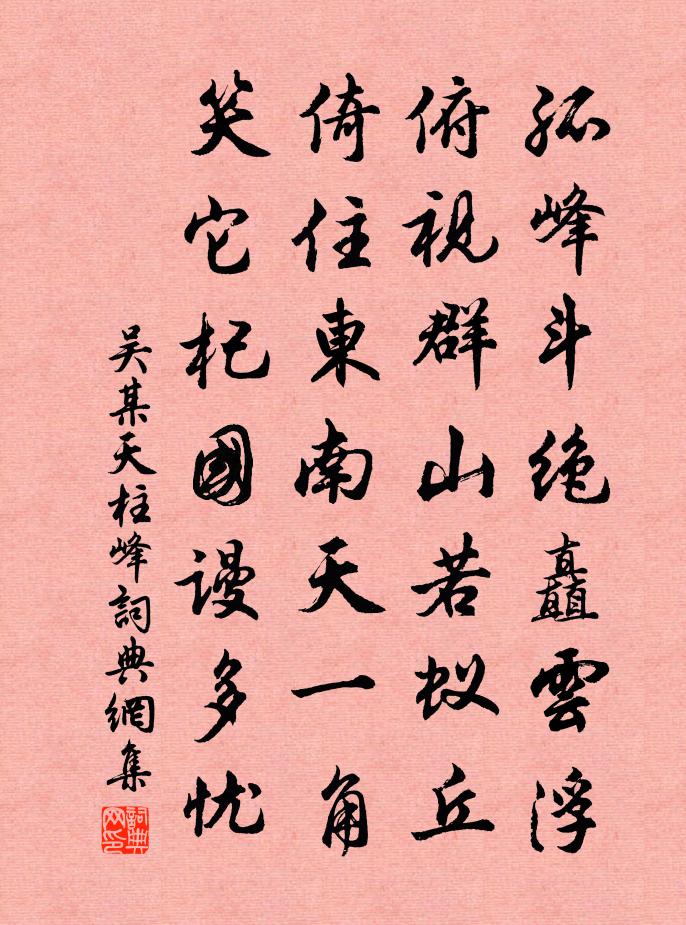 孤峰斗绝矗雲浮
俯視群山若蚁丘
倚住東南天一角
笑它杞國謾多忧
吴某天柱峰詞典網集
詞典网印